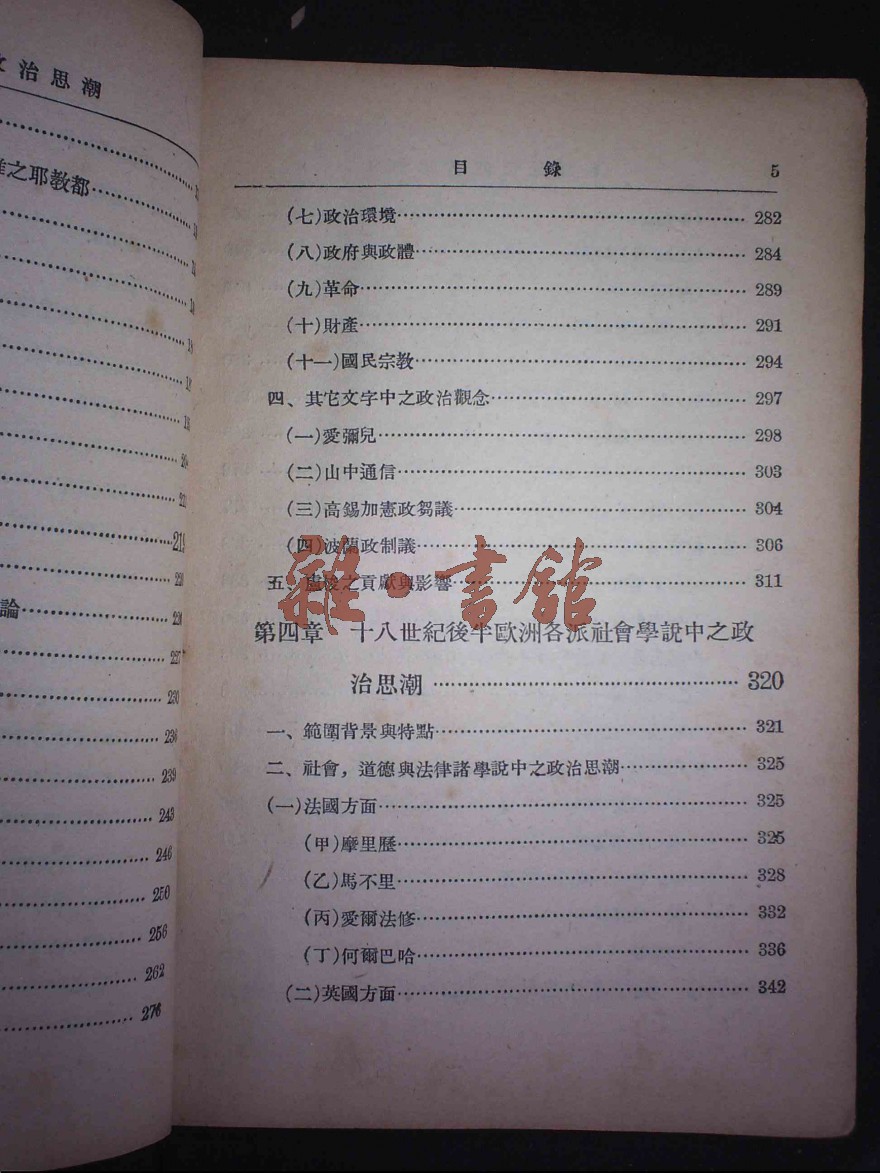 治思潮
之耶教都
219
論
226
227
230
236
239
243
246
250
256
262
276
目錄 5
(七)政治環境 282
(八)政府與政體 284
(九)革命 289
(十)財產 291
(十一)國民宗教 294
四、其它文字中之政治觀念 297
(一)愛彌兒 298
(二)山中通信 303
(三)高錫加憲政芻議 304
(四)波蘭政制議 306
五、盧梭之貢獻與影響 311
第四章 十八世紀後半歐洲各派社會學說中之政
治思潮 320
一、範圍背景與特點 321
二、社會，道德與法律諸學說中之政治思潮 325
(一)法國方面 325
(甲)摩里歷 325
(乙)馬不里 328
(丙)愛爾法修 332
(丁)何爾巴哈 336
(二)英國方面 342
雜·書館